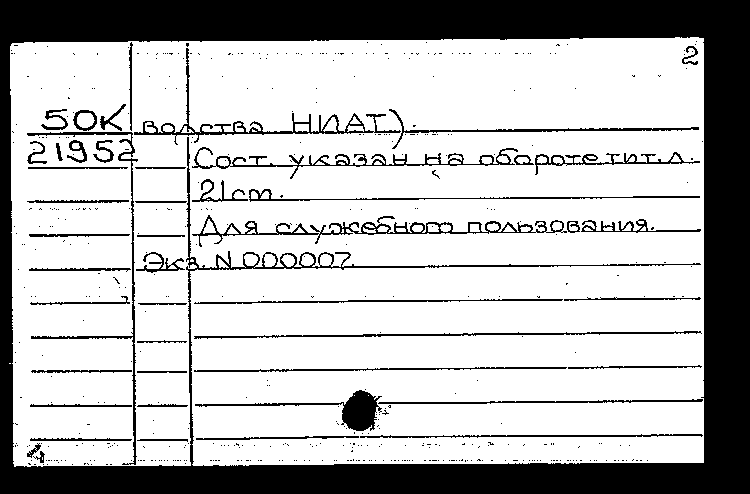 2
50К водства НИАТ).
21952 Сост. указан на обороте тит. л.
21 cm.
Для служебного пользования.
Экз. N 000007.